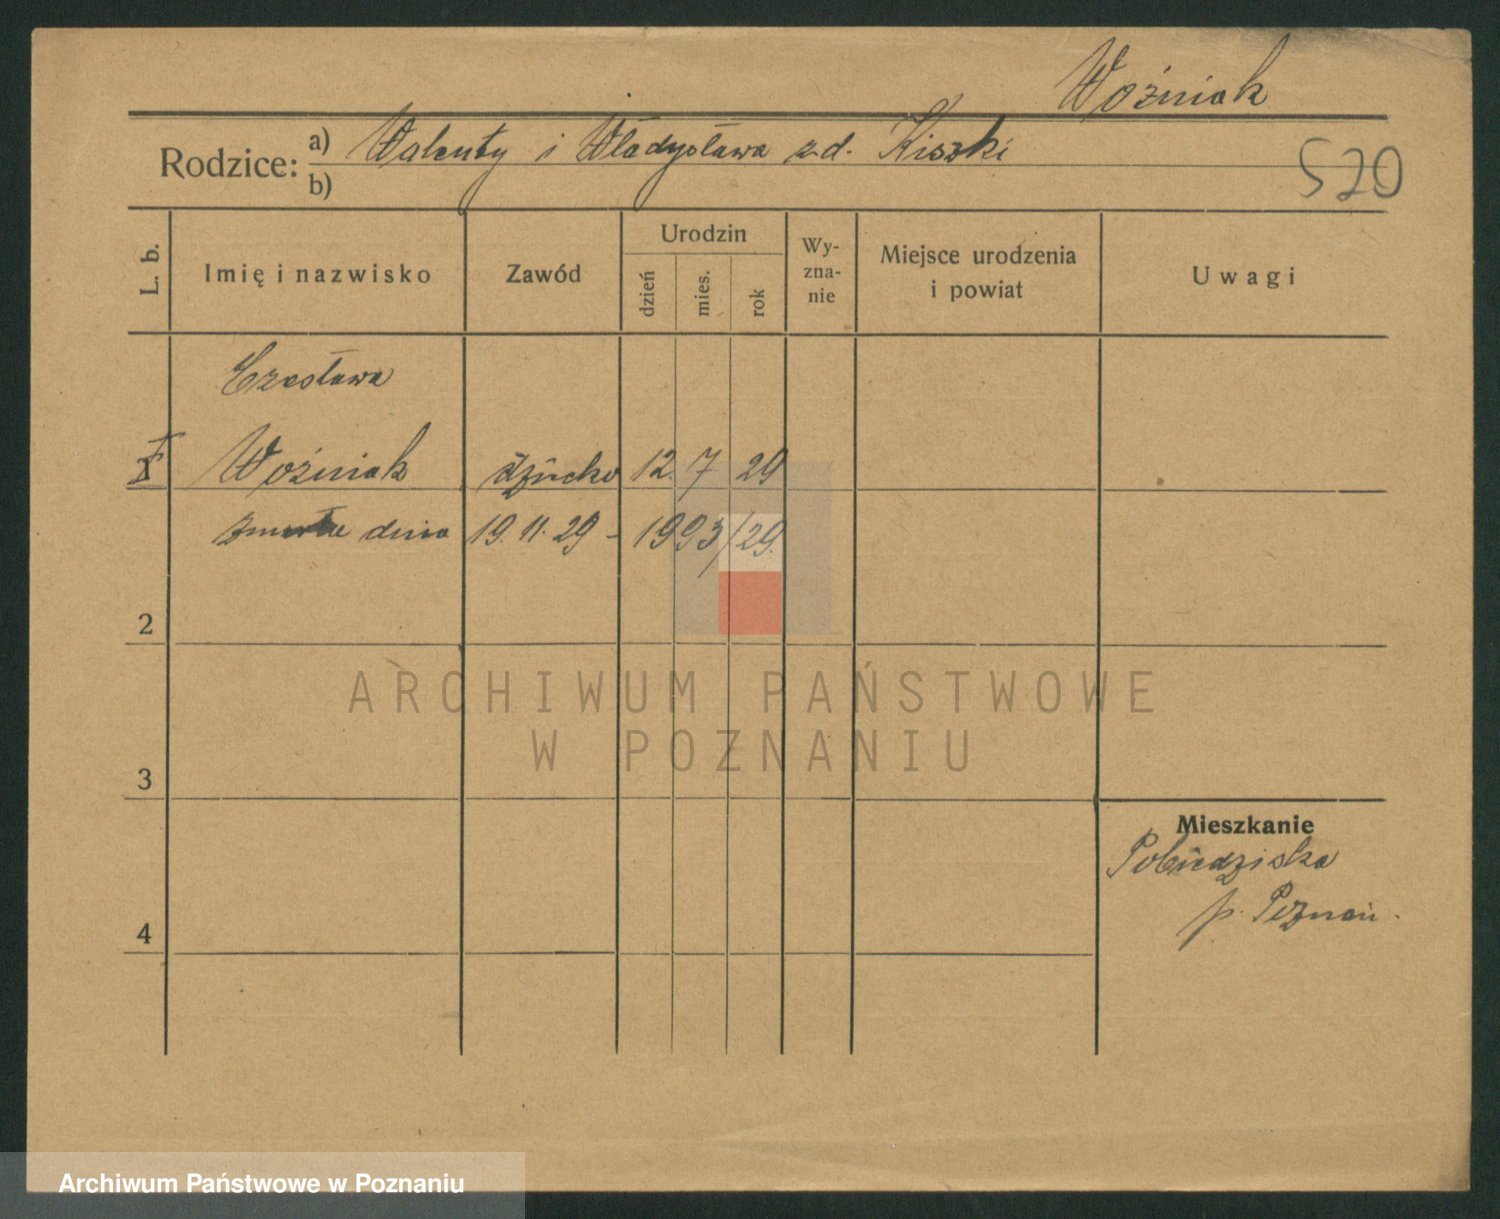 Woźniak
Rodzice: a) Walenty i Władysława z d. Kiszki
b)
520
L. b.
Imię i nazwisko
Zawód
Urodzin
dzień
mies.
rok
Wy-
zna-
nie
Miejsce urodzenia
i powiat
Uwagi
Czesława
Woźniak dziecko 12. 7 29
zmarła dnia 19. 11. 29 - 1993/29.
2
ARCHIWUM PAŃSTWOWE
W POZNANIU
3
Mieszkanie
Pobiedziska
p. Poznań.
4
Archiwum Państwowe w Poznaniu